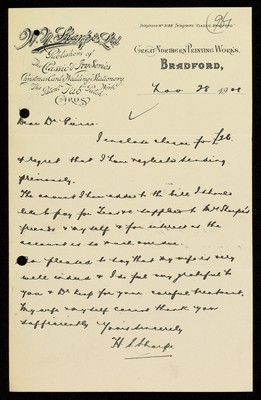 Telephone Nº 3186. Telegrams "Classic, Bradford."
W. N. Sharpe Ltd.
Publishers of
The "Classic" Series
Christmas Cards, Wedding Stationery
Cards
Great Northern Printing Works,
Bradford,
Nov 28 19
Dear Dr. Pierce
I enclose cheque for
& regret that I have neglected sending
previously.
The amount I have added to the bill I should
like to pay for Teas &c supplied to Mrs Sharpe's
friends & myself & for interest as the
account is so much overdue.
I am pleased to say that my wife is very
well indeed & I do feel very grateful to
you & Dr for your careful treatment.
My wife & myself cannot thank you
sufficiently
Yours Sincerely
H S Sharpe